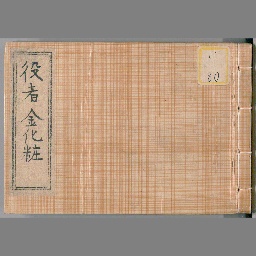 役者金化粧